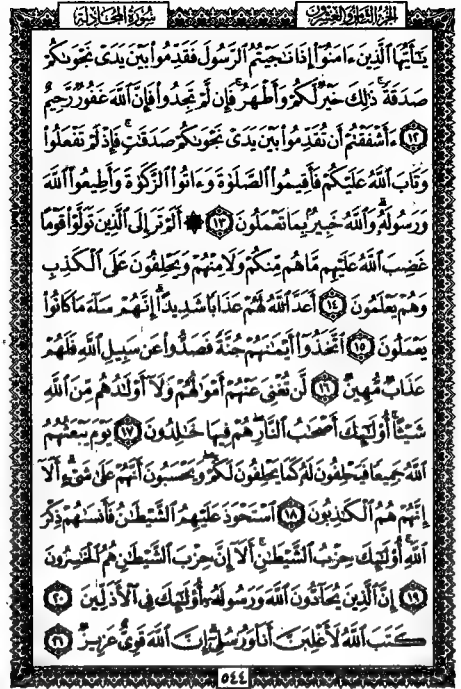 الجزء الثامن والعشرون سورة المجادلة
يَٰٓأَيُّهَا ٱلَّذِينَ ءَامَنُوٓا۟ إِذَا نَٰجَيْتُمُ ٱلرَّسُولَ فَقَدِّمُوا۟ بَيْنَ يَدَىْ نَجْوَىٰكُمْ
صَدَقَةً ۚ ذَٰلِكَ خَيْرٌ لَّكُمْ وَأَطْهَرُ ۚ فَإِن لَّمْ تَجِدُوا۟ فَإِنَّ ٱللَّهَ غَفُورٌ رَّحِيمٌ
١٢ ءَأَشْفَقْتُمْ أَن تُقَدِّمُوا۟ بَيْنَ يَدَىْ نَجْوَىٰكُمْ صَدَقَٰتٍ ۚ فَإِذْ لَمْ تَفْعَلُوا۟
وَتَابَ ٱللَّهُ عَلَيْكُمْ فَأَقِيمُوا۟ ٱلصَّلَوٰةَ وَءَاتُوا۟ ٱلزَّكَوٰةَ وَأَطِيعُوا۟ ٱللَّهَ
وَرَسُولَهُۥ ۚ وَٱللَّهُ خَبِيرٌۢ بِمَا تَعْمَلُونَ ١٣ ۞ أَلَمْ تَرَ إِلَى ٱلَّذِينَ تَوَلَّوْا۟ قَوْمًا
غَضِبَ ٱللَّهُ عَلَيْهِم مَّا هُم مِّنكُمْ وَلَا مِنْهُمْ وَيَحْلِفُونَ عَلَى ٱلْكَذِبِ
وَهُمْ يَعْلَمُونَ ١٤ أَعَدَّ ٱللَّهُ لَهُمْ عَذَابًا شَدِيدًا ۖ إِنَّهُمْ سَآءَ مَا كَانُوا۟
يَعْمَلُونَ ١٥ ٱتَّخَذُوٓا۟ أَيْمَٰنَهُمْ جُنَّةً فَصَدُّوا۟ عَن سَبِيلِ ٱللَّهِ فَلَهُمْ
عَذَابٌ مُّهِينٌ ١٦ لَّن تُغْنِىَ عَنْهُمْ أَمْوَٰلُهُمْ وَلَآ أَوْلَٰدُهُم مِّنَ ٱللَّهِ
شَيْـًٔا ۚ أُو۟لَٰٓئِكَ أَصْحَٰبُ ٱلنَّارِ ۖ هُمْ فِيهَا خَٰلِدُونَ ١٧ يَوْمَ يَبْعَثُهُمُ
ٱللَّهُ جَمِيعًا فَيَحْلِفُونَ لَهُۥ كَمَا يَحْلِفُونَ لَكُمْ ۖ وَيَحْسَبُونَ أَنَّهُمْ عَلَىٰ شَىْءٍ ۚ أَلَآ
إِنَّهُمْ هُمُ ٱلْكَٰذِبُونَ ١٨ ٱسْتَحْوَذَ عَلَيْهِمُ ٱلشَّيْطَٰنُ فَأَنسَىٰهُمْ ذِكْرَ
ٱللَّهِ ۚ أُو۟لَٰٓئِكَ حِزْبُ ٱلشَّيْطَٰنِ ۚ أَلَآ إِنَّ حِزْبَ ٱلشَّيْطَٰنِ هُمُ ٱلْخَٰسِرُونَ
١٩ إِنَّ ٱلَّذِينَ يُحَآدُّونَ ٱللَّهَ وَرَسُولَهُۥٓ أُو۟لَٰٓئِكَ فِى ٱلْأَذَلِّينَ ٢٠
كَتَبَ ٱللَّهُ لَأَغْلِبَنَّ أَنَا۠ وَرُسُلِىٓ ۚ إِنَّ ٱللَّهَ قَوِىٌّ عَزِيزٌ ٢١
٥٤٤